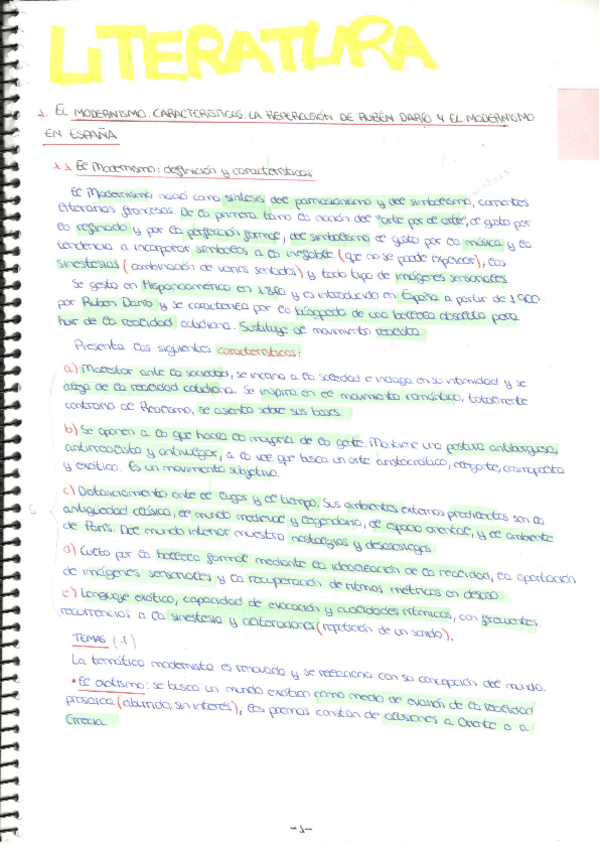 LITERATURA
1. EL MODERNISMO. CARACTERÍSTICAS. LA REPERCUSIÓN DE RUBÉN DARÍO Y EL MODERNISMO
EN ESPAÑA
1.1 El Modernismo: definición y características
El Modernismo nació como síntesis del parnasianismo y del simbolismo, corrientes
literarias francesas. De la primera tomó la noción del "arte por el arte", el gusto por
lo refinado y por la perfección formal, del simbolismo el gusto por la música y la
tendencia a incorporar símbolos a lo inefable (que no se puede explicar), las
sinestesias (combinación de varios sentidos) y todo tipo de imágenes sensoriales.
Se gesta en Hispanoamérica en 1880 y es introducido en España a partir de 1900
por Rubén Darío y se caracteriza por la búsqueda de una belleza absoluta para
huir de la realidad cotidiana. Sustituye al movimiento realista.
Presenta las siguientes características:
a) Malestar ante la sociedad, se inclina a la soledad e indaga en su intimidad y se
aleja de la realidad cotidiana. Se inspira en el movimiento romántico, totalmente
contrario al Realismo, se asienta sobre sus bases.
b) Se oponen a lo que haría la mayoría de la gente. Mantiene una postura antiburguesa,
antirrealista y antivulgar, a la vez que busca un arte aristocrático, elegante, cosmopolita
y exótico. Es un movimiento subjetivo.
c) Distanciamiento ante el lugar y el tiempo. Sus ambientes externos predilectos son la
antigüedad clásica, el mundo medieval y legendario, el espacio oriental, y el ambiente
de París. Del mundo interior muestra nostalgias y desasosiegos
d) Culto por la belleza formal mediante la idealización de la realidad, la aportación
de imágenes sensoriales y la recuperación de ritmos métricos en desuso.
e) Lenguaje exótico, capacidad de evocación y cualidades rítmicas, con frecuentes
recurrencias a la sinestesia y aliteraciones (repetición de un sonido).
TEMAS
La temática modernista es renovada y se relaciona con su concepción del mundo.
• El exotismo: se busca un mundo exótico como medio de evasión de la realidad
prosaica (aburrido, sin interés), los poemas constan de alusiones a Oriente o a
Grecia.
-1-